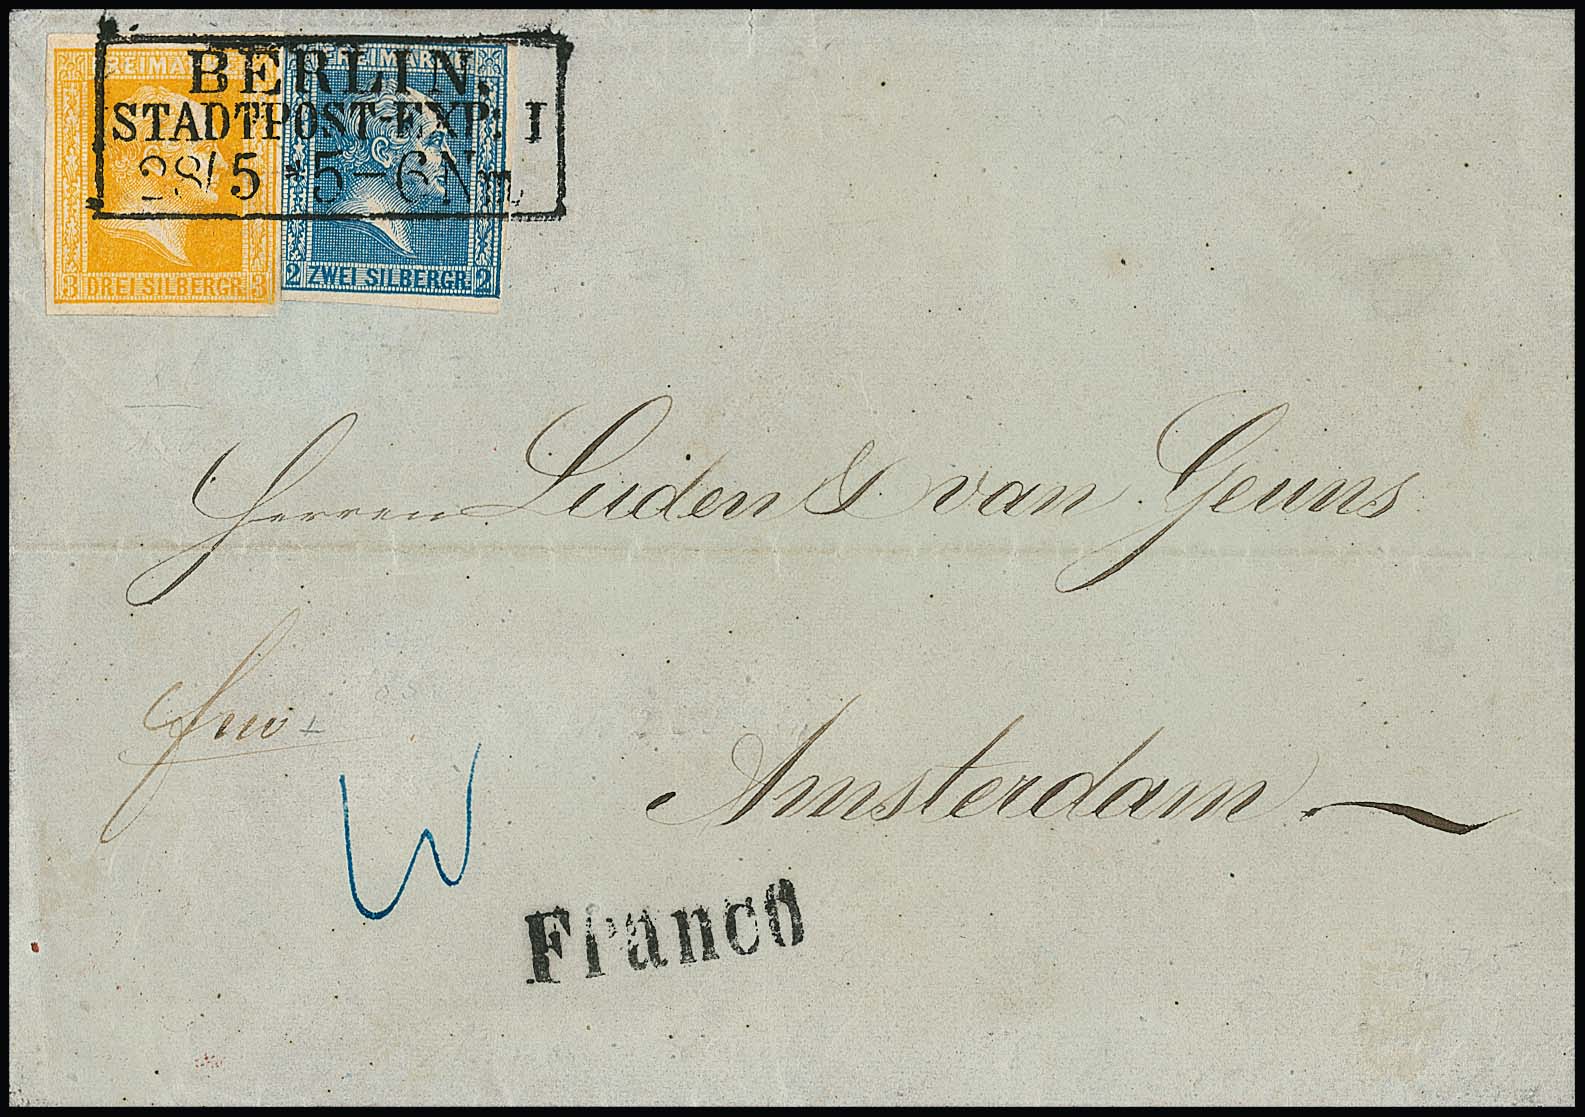 FREIMARKE
3 DREI SILBERGR. 3
FREIMARKE
2 ZWEI SILBERGR. 2
BERLIN.
STADTPOST-EXP: I
28/5 *5-6Nm
Herren Luden & van Geuns
Amsterdam
Franco